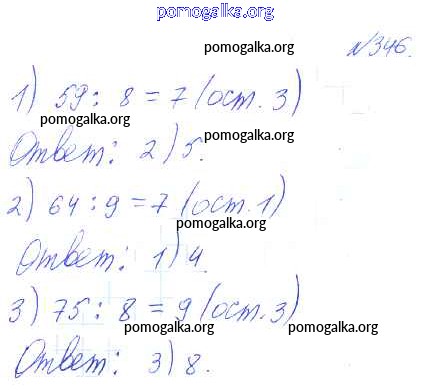 pomogalka.org
№346.
pomogalka.org
1) 59 : 8 = 7 (ост. 3)
pomogalka.org
pomogalka.org
Ответ: 2) 5.
pomogalka.org
2) 64 : 9 = 7 (ост. 1)
pomogalka.org
Ответ: 1) 4.
pomogalka.org
3) 75 : 8 = 9 (ост. 3)
pomogalka.org pomogalka.org
Ответ: 3) 8.
pomogalka.org